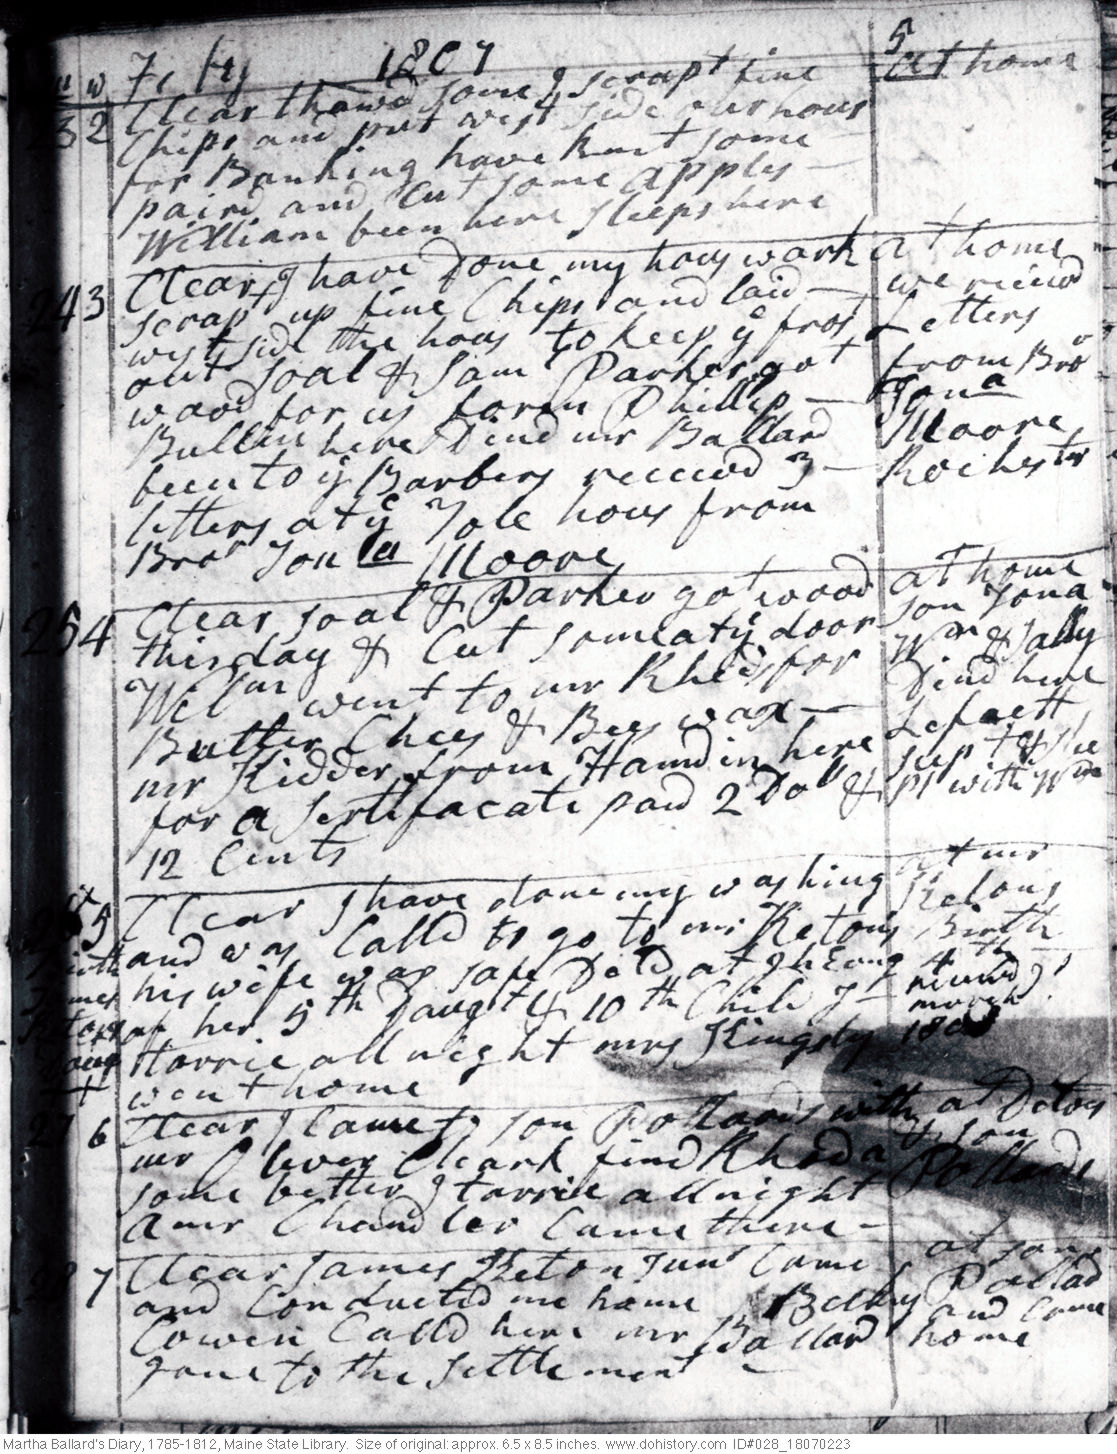 1807
5
m w
23 2
Clear thawd some I scrapt fine
Chips and put west side our hous
for Banking have knit some
paird and Cut some apples —
William been here sleeps here
at home
24 3
Clear, I have Done my hous work
scrapt up fine Chips and laid —
west side the hous to keep ye frost
out soal & Sam Parker got
wood for us Phillip —
Bullin here Dind mr Ballard
been to ye Barbers receivd 3 —
letters at ye Tole hous from
Bror Jona Moore
at home
we receivd
Letters
from Bro
Jona
Moore
Rochester
25 4
Clear soal & Parker got wood
this day & Cut some at ye door
Wilm went to mr Rheds for
Butter Chees & Bees wax —
mr Kidder from Hamdin here
for a sertifacate paid 2 Doll &
12 Cents
at home
son Jona
Wm & Sally
Dind here
Lefaett
sup to & sle
pt with Wm
5
Clear I have done my washing
and was Calld to go to mr Ketons
his wife was safe Deld at 7h Evng
of her 5th Daugt & 10th Child I
tarrie all night mrs Kingsby
went home
at mr
Ketons
Birth
4th
receivd
march
Birth
James
Ketons
Daugt
+
27 6
Clear I came to son Pollards with
mr Oliver Cleark find Rhoda
some better I tarrie all night
a mr Chandler Came there —
at Ketons
& son
Pollards
28 7
Clear James Keton Junr Came
and Conducted me home Beckey
Cowen Calld here mr Ballard
gone to the settlement —
at son
Pollad
and Came
home
Martha Ballard's Diary, 1785-1812, Maine State Library. Size of original: approx. 6.5 x 8.5 inches. www.dohistory.com ID#028_18070223